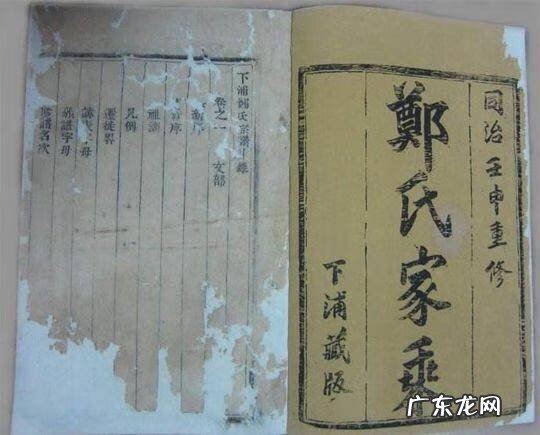 同治壬申重修
鄭氏家乘
下浦藏版
下浦鄭氏宗譜目錄
卷之一 文部
序
凡例
遷徙畧
譜字母
修譜名次
广东龙网